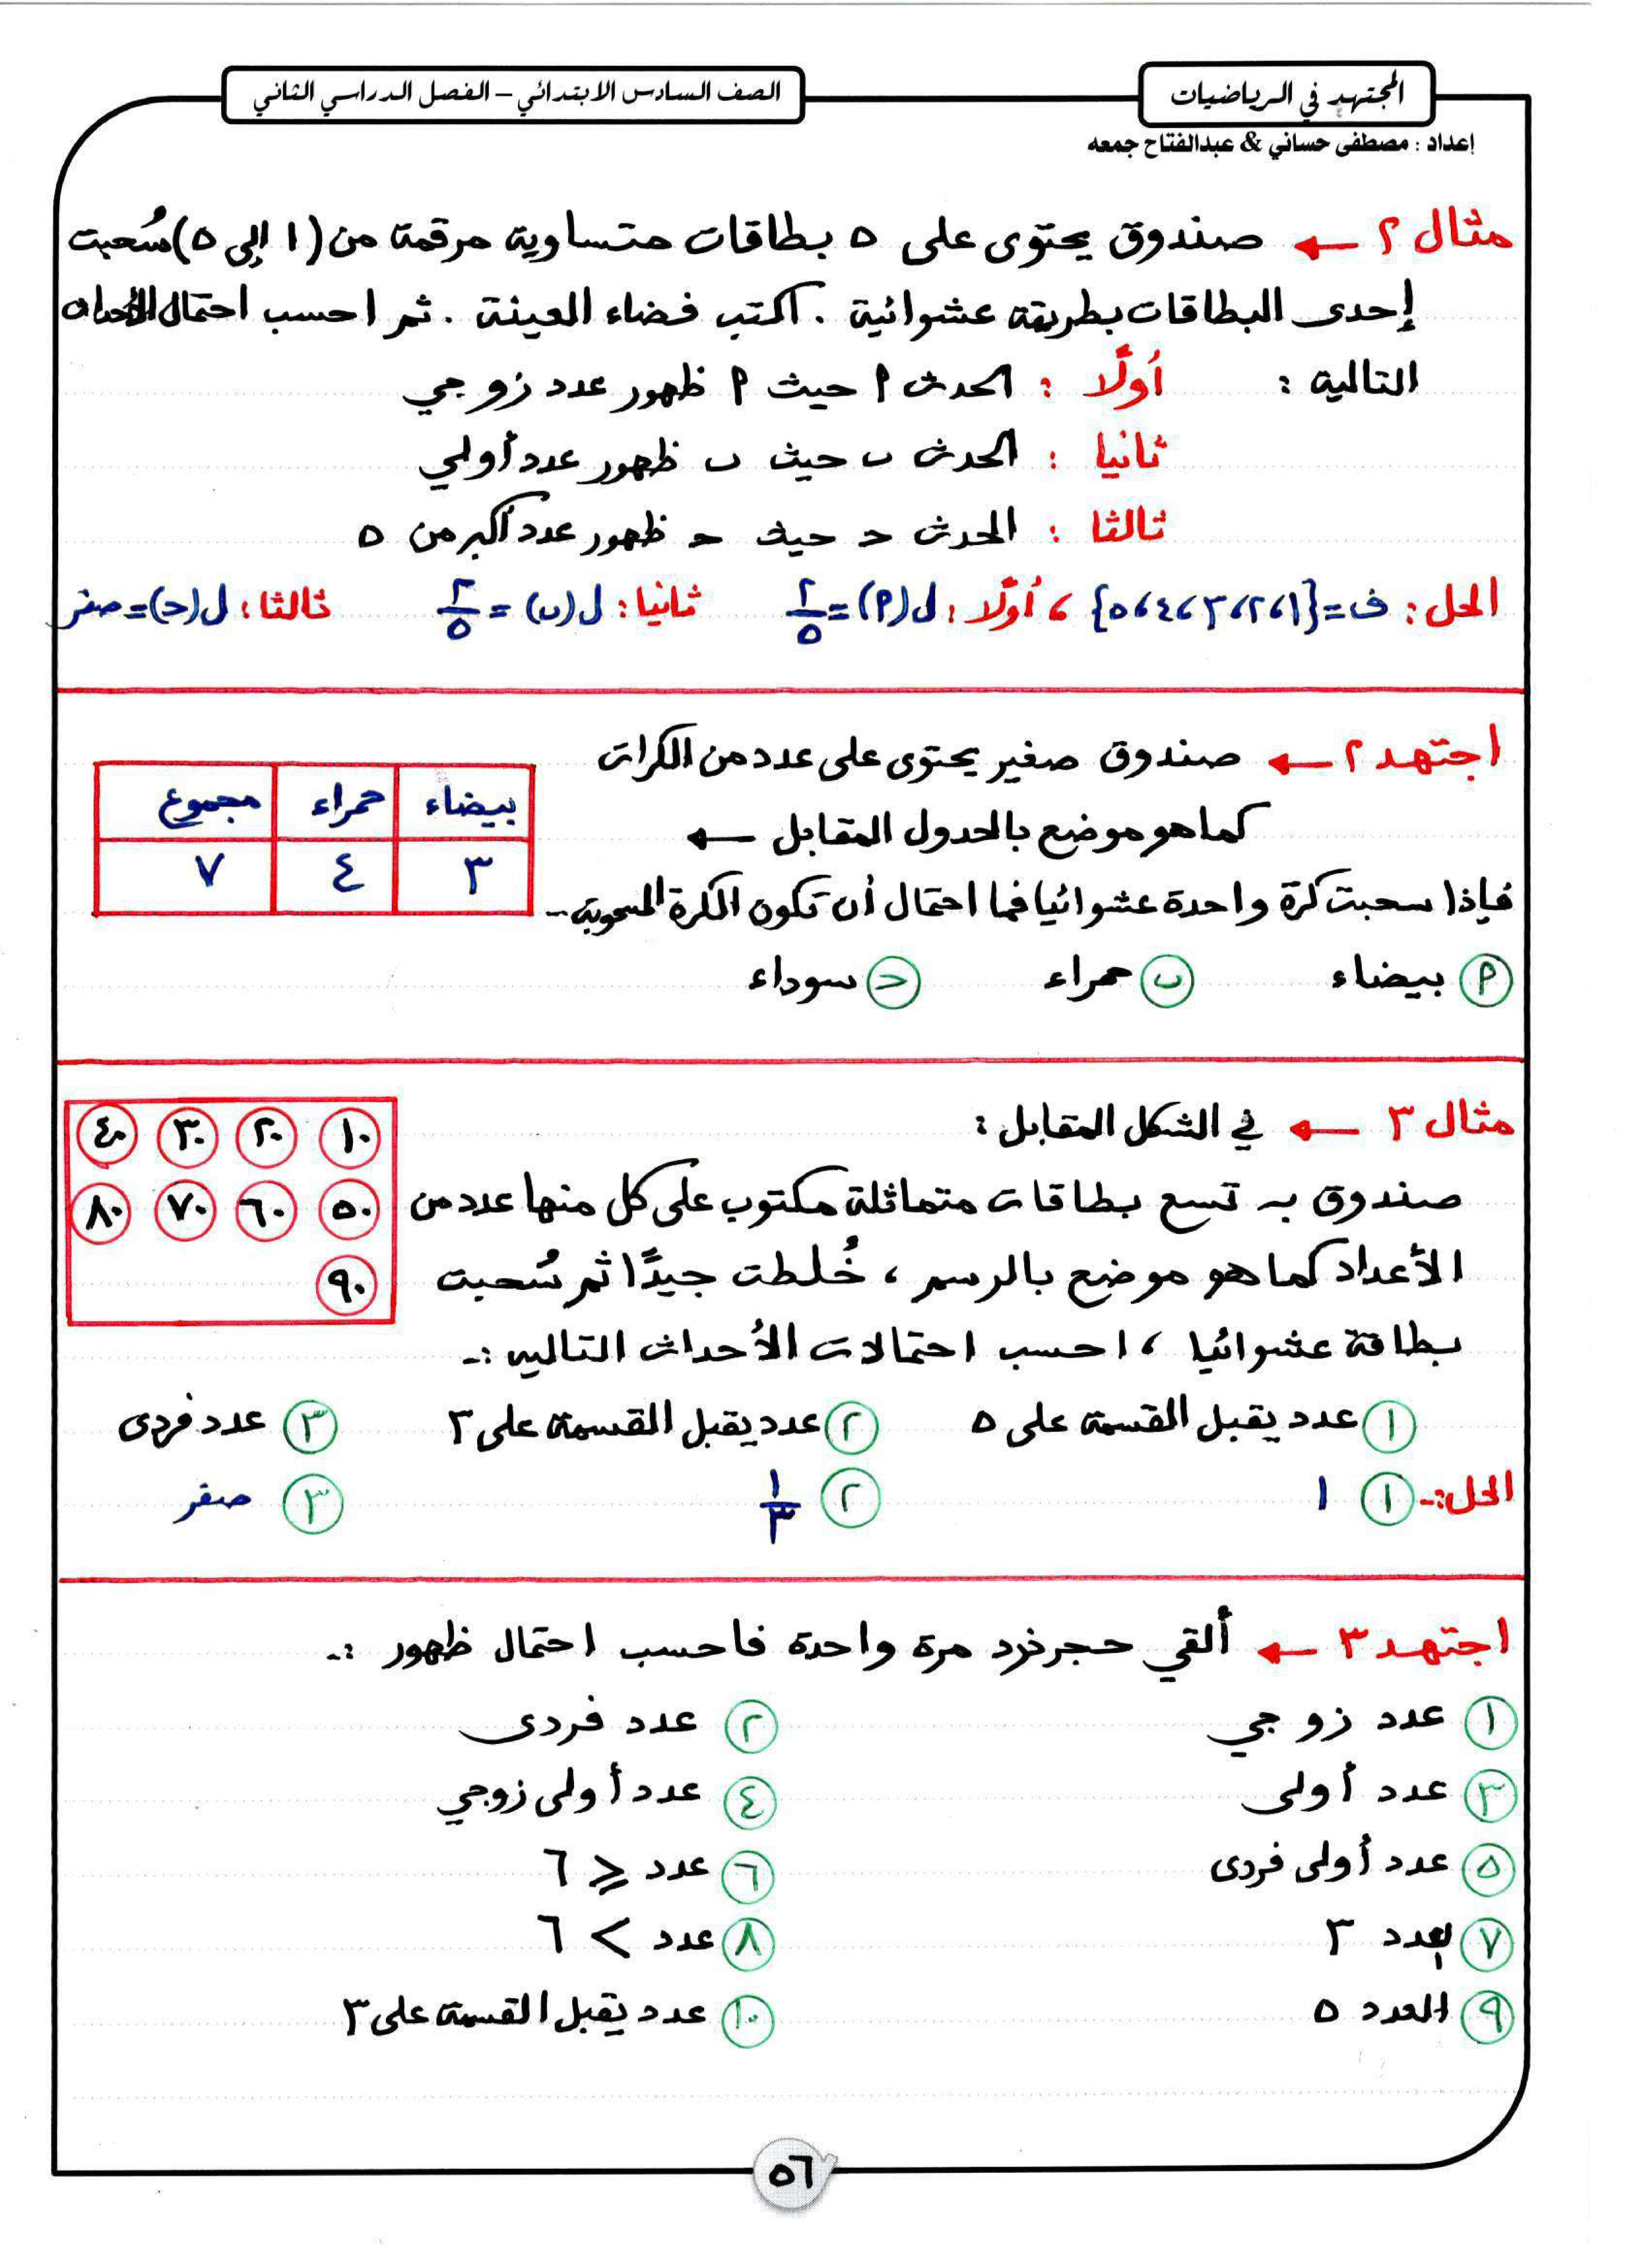 المجتهد في الرياضيات
الصف السادس الابتدائي – الفصل الدراسي الثاني
إعداد : مصطفى حساني & عبدالفتاح جمعه
مثال ٢ ← صندوق يحتوى على ٥ بطاقات متساوية مرقمة من (١ إلى ٥) سُحبت
إحدى البطاقات بطريقة عشوائية . اكتب فضاء العينة . ثم احسب احتمال الأحداث
التالية : أولًا : الحدث ٩ حيث ٩ ظهور عدد زوجي
ثانيا : الحدث ب حيث ب ظهور عدد أولي
ثالثا : الحدث حـ حيث حـ ظهور عدد أكبر من ٥
الحل : ف = {١، ٢، ٣، ٤، ٥} ، أولًا : ل(٩) = ٢/٥ ثانيا : ل(ب) = ٢/٥ ثالثا : ل(حـ) = صفر
اجتهد ٢ ← صندوق صغير يحتوى على عدد من الكرات
كما هو موضع بالجدول المقابل ←
بيضاء حمراء مجموع
٣ ٤ ٧
فإذا سحبت كرة واحدة عشوائيا فما احتمال أن تكون الكرة المسحوبة ..
٩ بيضاء ب حمراء حـ سوداء
مثال ٣ ← في الشكل المقابل :
١٠ ٢٠ ٣٠ ٤٠
٥٠ ٦٠ ٧٠ ٨٠
٩٠
صندوق به تسع بطاقات متماثلة مكتوب على كل منها عدد من
الأعداد كما هو موضع بالرسم ، خُلطت جيدًا ثم سُحبت
بطاقة عشوائيا ، احسب احتمالات الأحداث التالية :-
١ عدد يقبل القسمة على ٥ ٢ عدد يقبل القسمة على ٣ ٣ عدد فردى
الحل :- ١ ١ ٢ ١/٣ ٣ صفر
اجتهد ٣ ← ألقي حجر نرد مرة واحدة فاحسب احتمال ظهور :-
١ عدد زوجي ٢ عدد فردى
٣ عدد أولى ٤ عدد أولى زوجي
٥ عدد أولى فردى ٦ عدد ⩽ ٦
٧ العدد ٣ ٨ عدد > ٦
٩ العدد ٥ ١٠ عدد يقبل القسمة على ٣
٥٦